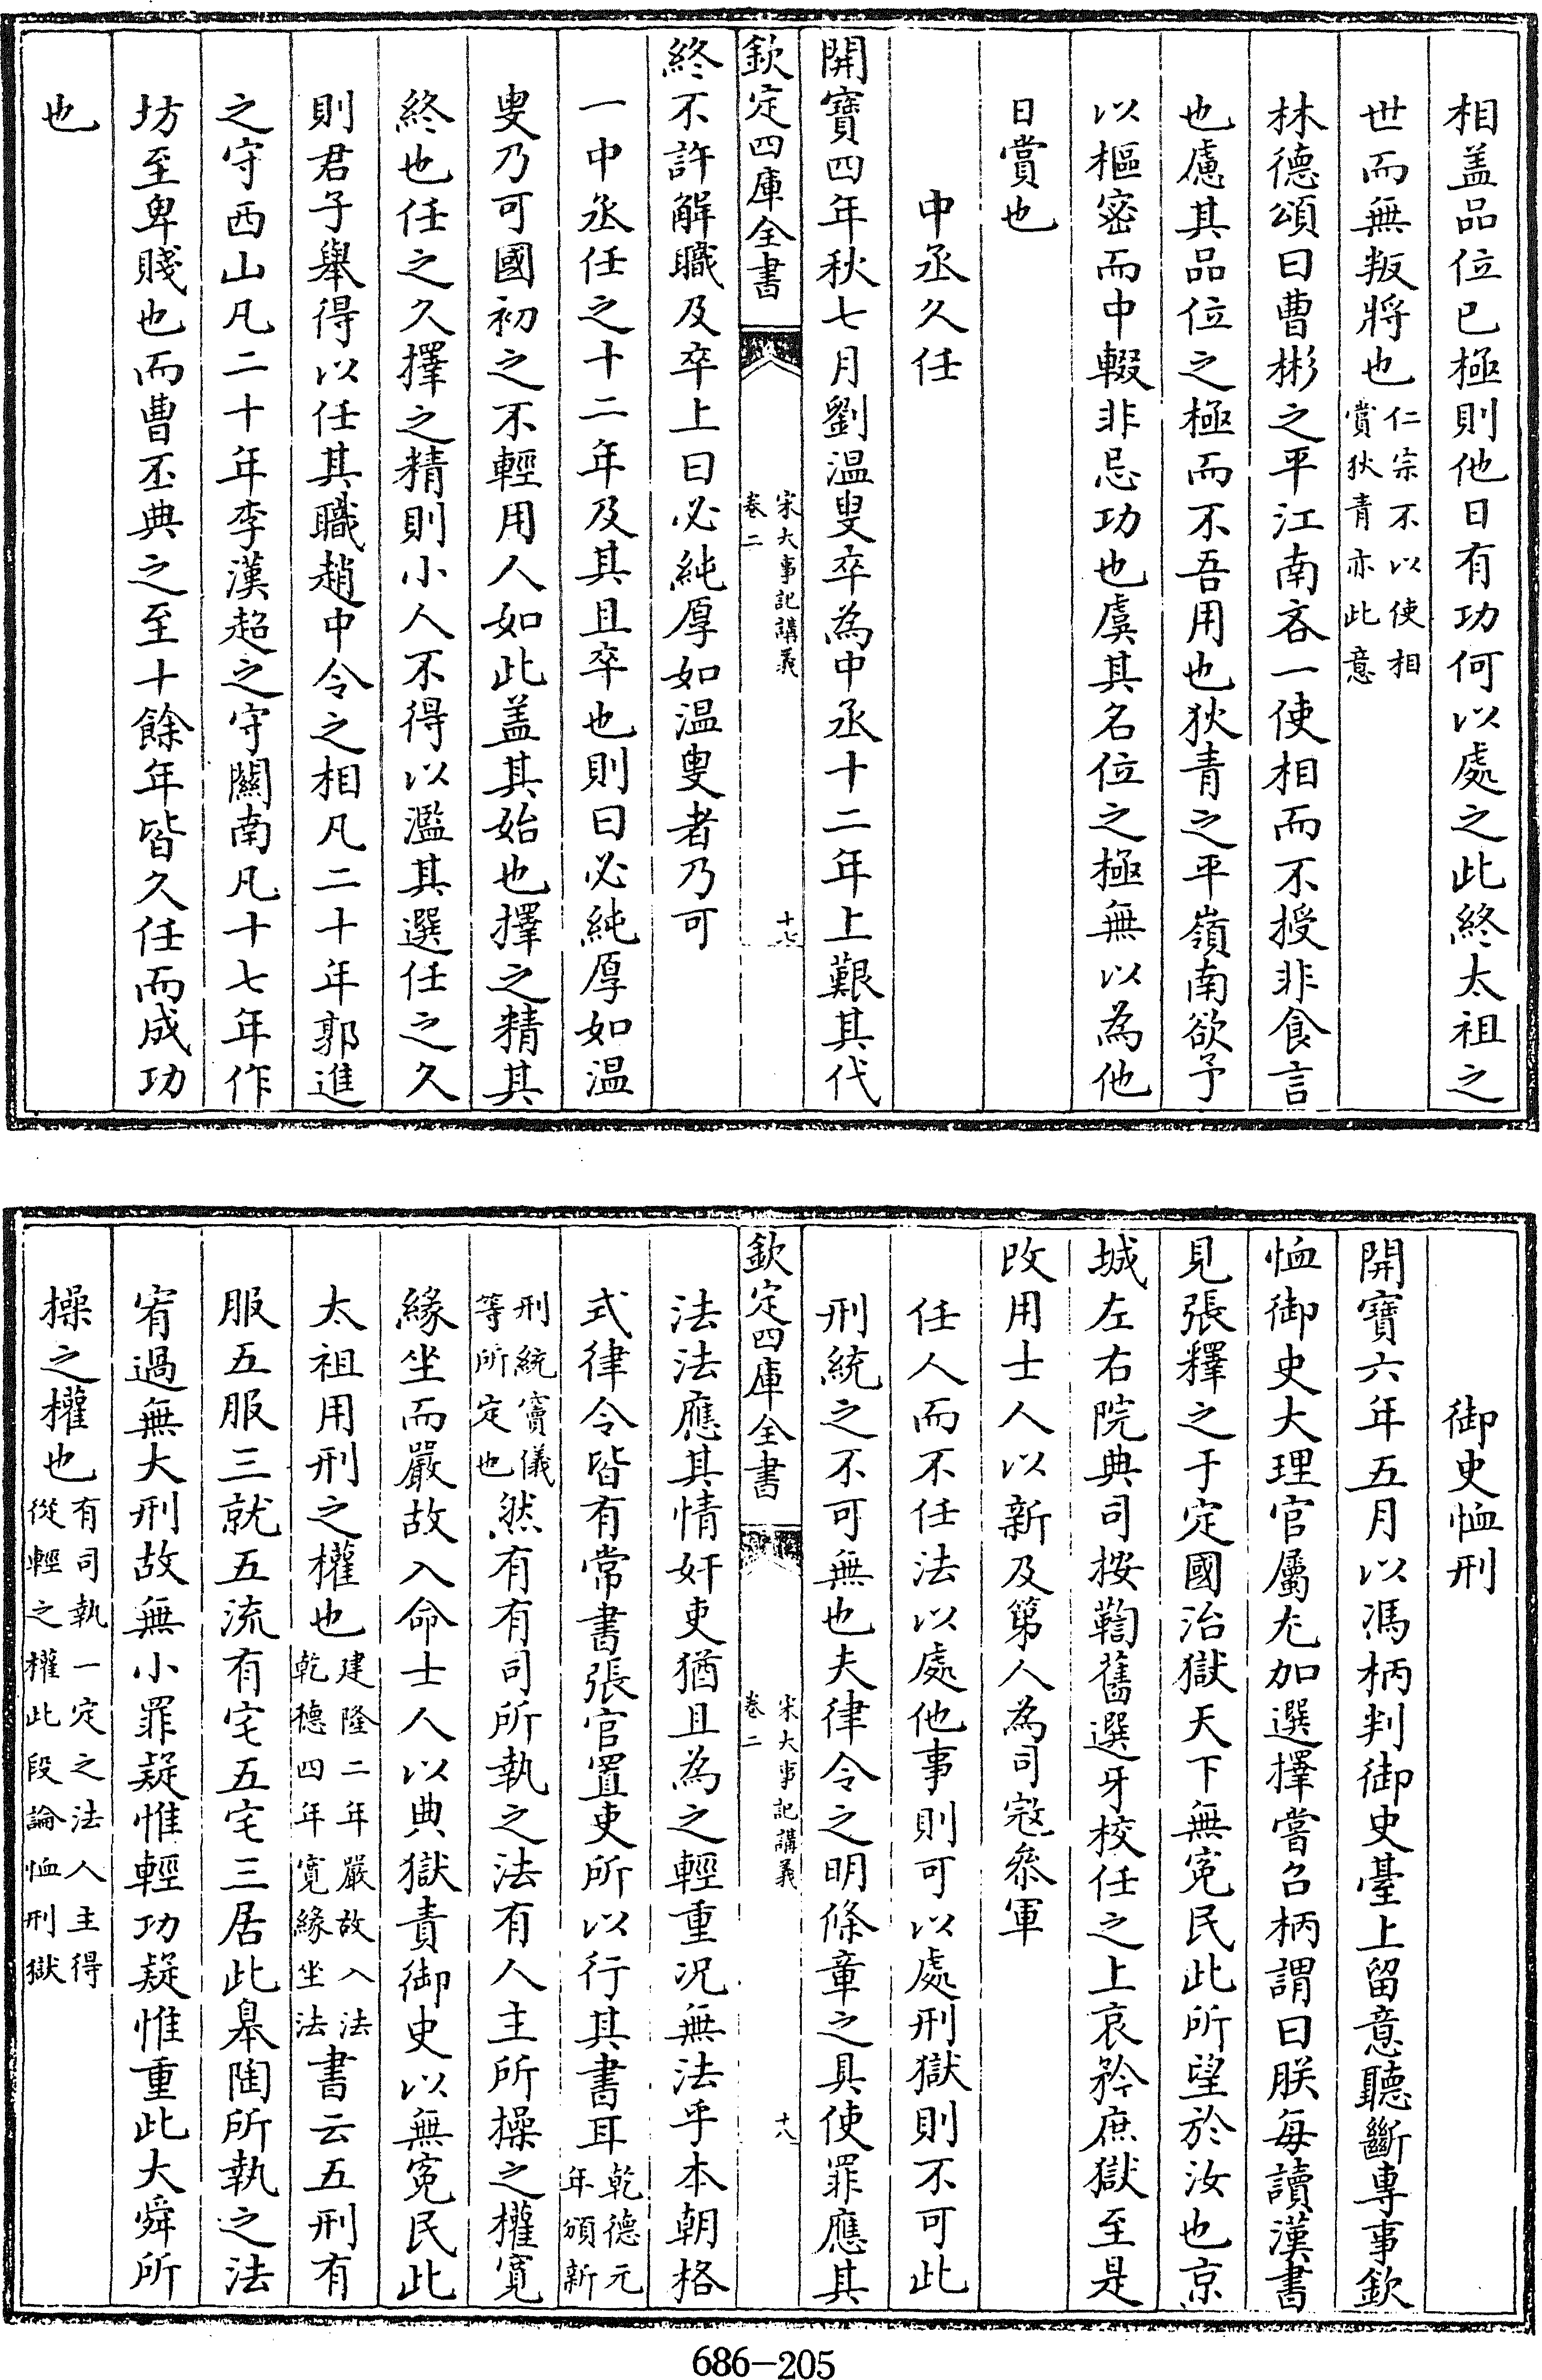 相盖品位已極則他日有功何以處之此終太祖之
世而無叛將也仁宗不以使相賞狄青亦此意
林德頌曰曹彬之平江南吝一使相而不授非食言
也慮其品位之極而不吾用也狄青之平嶺南欲予
以樞密而中輟非忌功也虞其名位之極無以為他
日賞也
中丞久任
開寶四年秋七月劉温叟卒為中丞十二年上艱其代
欽定四庫全書
宋大事記講義
卷二
十七
終不許解職及卒上曰必純厚如温叟者乃可
一中丞任之十二年及其且卒也則曰必純厚如温
叟乃可國初之不輕用人如此盖其始也擇之精其
終也任之久擇之精則小人不得以濫其選任之久
則君子舉得以任其職趙中令之相凡二十年郭進
之守西山凡二十年李漢超之守關南凡十七年作
坊至卑賤也而曹丕典之至十餘年皆久任而成功
也
御史恤刑
開寶六年五月以馮柄判御史臺上留意聽斷專事欽
恤御史大理官屬尤加選擇嘗召柄謂曰朕每讀漢書
見張釋之于定國治獄天下無寃民此所望於汝也京
城左右院典司按鞫舊選牙校任之上哀矜庶獄至是
改用士人以新及第人為司寇參軍
任人而不任法以處他事則可以處刑獄則不可此
刑統之不可無也夫律令之明條章之具使罪應其
欽定四庫全書
宋大事記講義
卷二
十八
法法應其情奸吏猶且為之輕重况無法乎本朝格
式律令皆有常書張官置吏所以行其書耳乾德元年頒新
刑統竇儀等所定也然有有司所執之法有人主所操之權寛
緣坐而嚴故入命士人以典獄責御史以無寃民此
太祖用刑之權也建隆二年嚴故入法乾德四年寛緣坐法書云五刑有
服五服三就五流有宅五宅三居此臯陶所執之法
宥過無大刑故無小罪疑惟輕功疑惟重此大舜所
操之權也有司執一定之法人主得從輕之權此段論恤刑獄
686-205